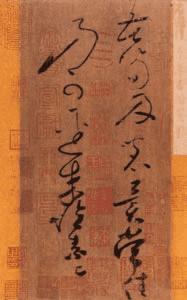 苦笋及茗異常佳
乃可逕來懷素上